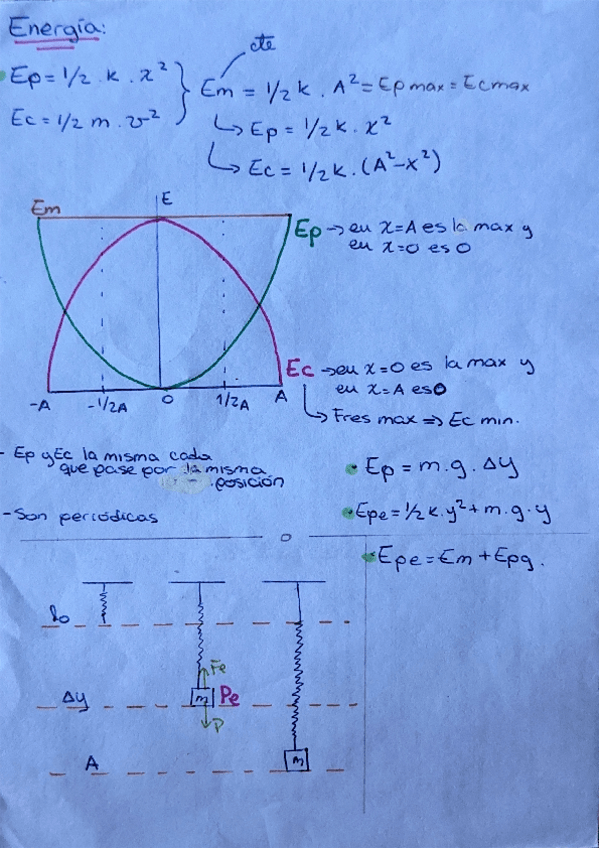 Energía:
cte
Ep = 1/2 . k . x²
Ec = 1/2 m . v²
Em = 1/2 k . A² = Ep max = Ec max
↳ Ep = 1/2 k . x²
↳ Ec = 1/2 k . (A² - x²)
Em
E
Ep → en x = A es la max y
en x = 0 es 0
Ec → en x = 0 es la max y
en x = A es 0
↳ Fres max ⇒ Ec min.
-A
-1/2A
0
1/2A
A
- Ep y Ec la misma cada
que pase por la misma
posición
- Son periódicas
• Ep = m . g . Δy
• Epe = 1/2 k . y² + m . g . y
• Epe = Em + Epg .
lo
Fe
Δy
m
Pe
P
A
m